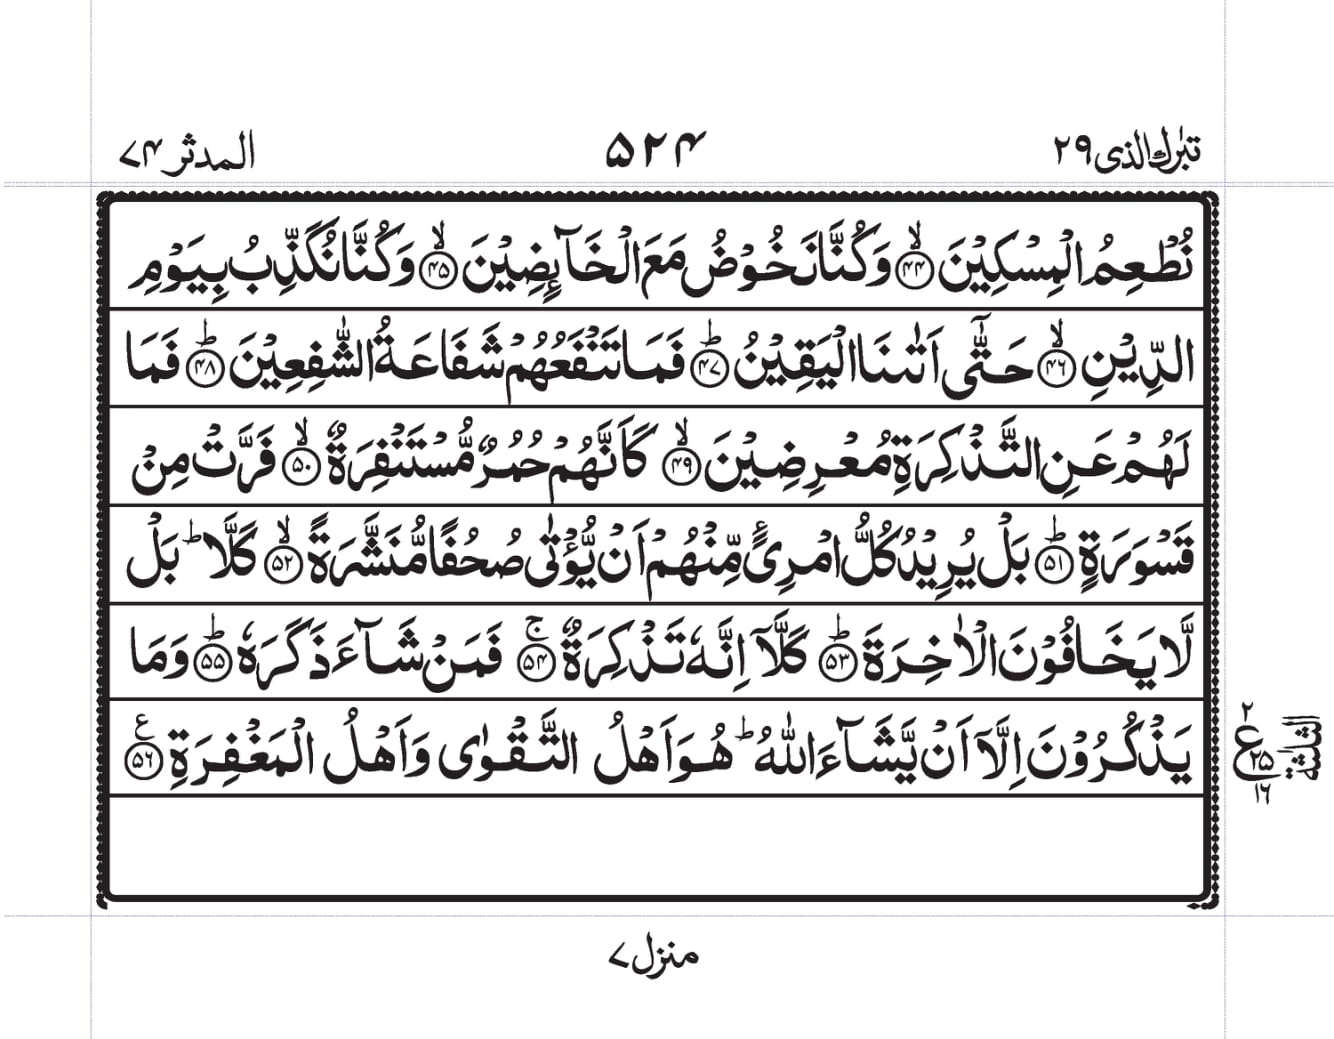 تبٰرك الذی ۲۹
۵۲۴
المدثر ۷۴
نُطْعِمُ الْمِسْكِیْنَ ۙ﴿۴۴﴾ وَكُنَّا نَخُوْضُ مَعَ الْخَآىِٕضِیْنَ ۙ﴿۴۵﴾ وَكُنَّا نُكَذِّبُ بِیَوْمِ
الدِّیْنِ ۙ﴿۴۶﴾ حَتّٰۤی اَتٰىنَا الْیَقِیْنُ ؕ﴿۴۷﴾ فَمَا تَنْفَعُهُمْ شَفَاعَةُ الشّٰفِعِیْنَ ؕ﴿۴۸﴾ فَمَا
لَهُمْ عَنِ التَّذْكِرَةِ مُعْرِضِیْنَ ۙ﴿۴۹﴾ كَاَنَّهُمْ حُمُرٌ مُّسْتَنْفِرَةٌ ۙ﴿۵۰﴾ فَرَّتْ مِنْ
قَسْوَرَةٍ ؕ﴿۵۱﴾ بَلْ یُرِیْدُ كُلُّ امْرِئٍ مِّنْهُمْ اَنْ یُّؤْتٰی صُحُفًا مُّنَشَّرَةً ۙ﴿۵۲﴾ كَلَّا ؕ بَلْ
لَّا یَخَافُوْنَ الْاٰخِرَةَ ؕ﴿۵۳﴾ كَلَّاۤ اِنَّهٗ تَذْكِرَةٌ ۚ﴿۵۴﴾ فَمَنْ شَآءَ ذَكَرَهٗ ؕ﴿۵۵﴾ وَمَا
یَذْكُرُوْنَ اِلَّاۤ اَنْ یَّشَآءَ اللّٰهُ ؕ هُوَ اَهْلُ التَّقْوٰی وَاَهْلُ الْمَغْفِرَةِ ﴿۵۶﴾ ع
۲
ع
۲۵
۱۶
الثلثة
منزل ۷